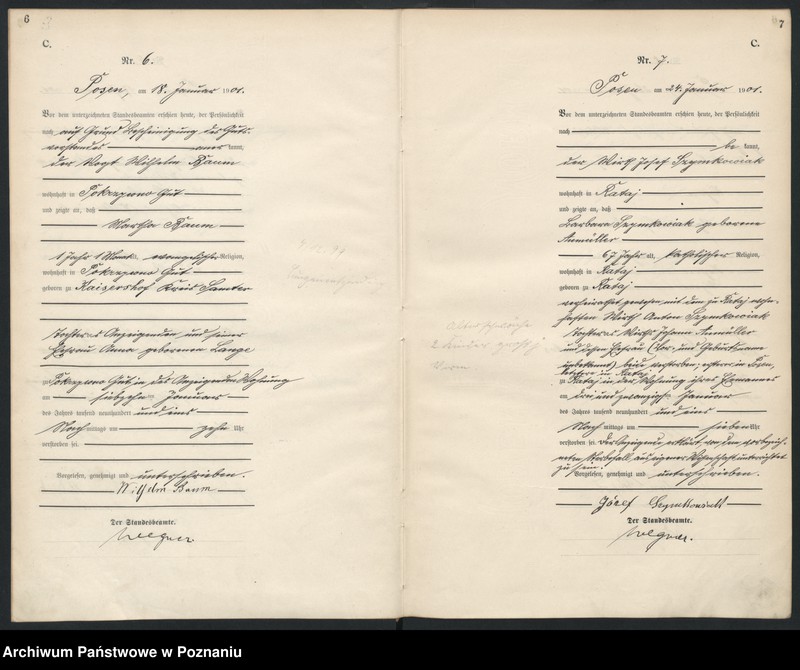 6
C.
Nr. 6.
Posen, am 18. Januar 1901.
Vor dem unterzeichneten Standesbeamten erschien heute, der Persönlichkeit
nach auf Grund Bescheinigung des Guts-
vorstandes kannt,
der Vogt Wilhelm Baum
wohnhaft in Pokrzywno Gut
und zeigte an, daß
Martha Baum
1 Jahr 1 Monat alt, evangelischer Religion,
wohnhaft in Pokrzywno Gut
geboren zu Kaisershof Kreis Samter
Tochter des Anzeigenden und seiner
Ehefrau Anna geborenen Lange
Pokrzywno Gut in des Anzeigenden Wohnung
am siebzehn Januar
des Jahres tausend neunhundert und eins
Nach mittags um zehn Uhr
verstorben sei.
Vorgelesen, genehmigt und unterschrieben.
Wilhelm Baum
Der Standesbeamte.
7
C.
Nr. 7.
Posen am 24. Januar 1901.
Vor dem unterzeichneten Standesbeamten erschien heute, der Persönlichkeit
nach
be kannt,
der Wirth Josef Szymkowiak
wohnhaft in Rataj
und zeigte an, daß
Barbara Szymkowiak geborene
Anmüller
67 Jahr alt, katholischer Religion,
wohnhaft in Rataj
geboren zu Rataj
verheirathet gewesen mit dem zu Rataj wohn-
haften Wirth Anton Szymkowiak
Tochter des Wirths Johann Anmüller
und dessen Ehefrau (Vor- und Geburtsname
unbekannt) beide verstorben, ersterer in Posen,
letztere in Rataj
zu Rataj in der Wohnung ihres Ehemannes
am drei und zwanzigsten Januar
des Jahres tausend neunhundert und eins
Nach mittags um sieben Uhr
verstorben sei. Der Anzeigende erklärt, von dem vorbezeich-
neten Sterbefall aus eigener Wissenschaft unterrichtet
zu sein.
Vorgelesen, genehmigt und unterschrieben.
Józef Szymkowiak
Der Standesbeamte.
Altersschwäche
2 Kinder großj
Archiwum Państwowe w Poznaniu